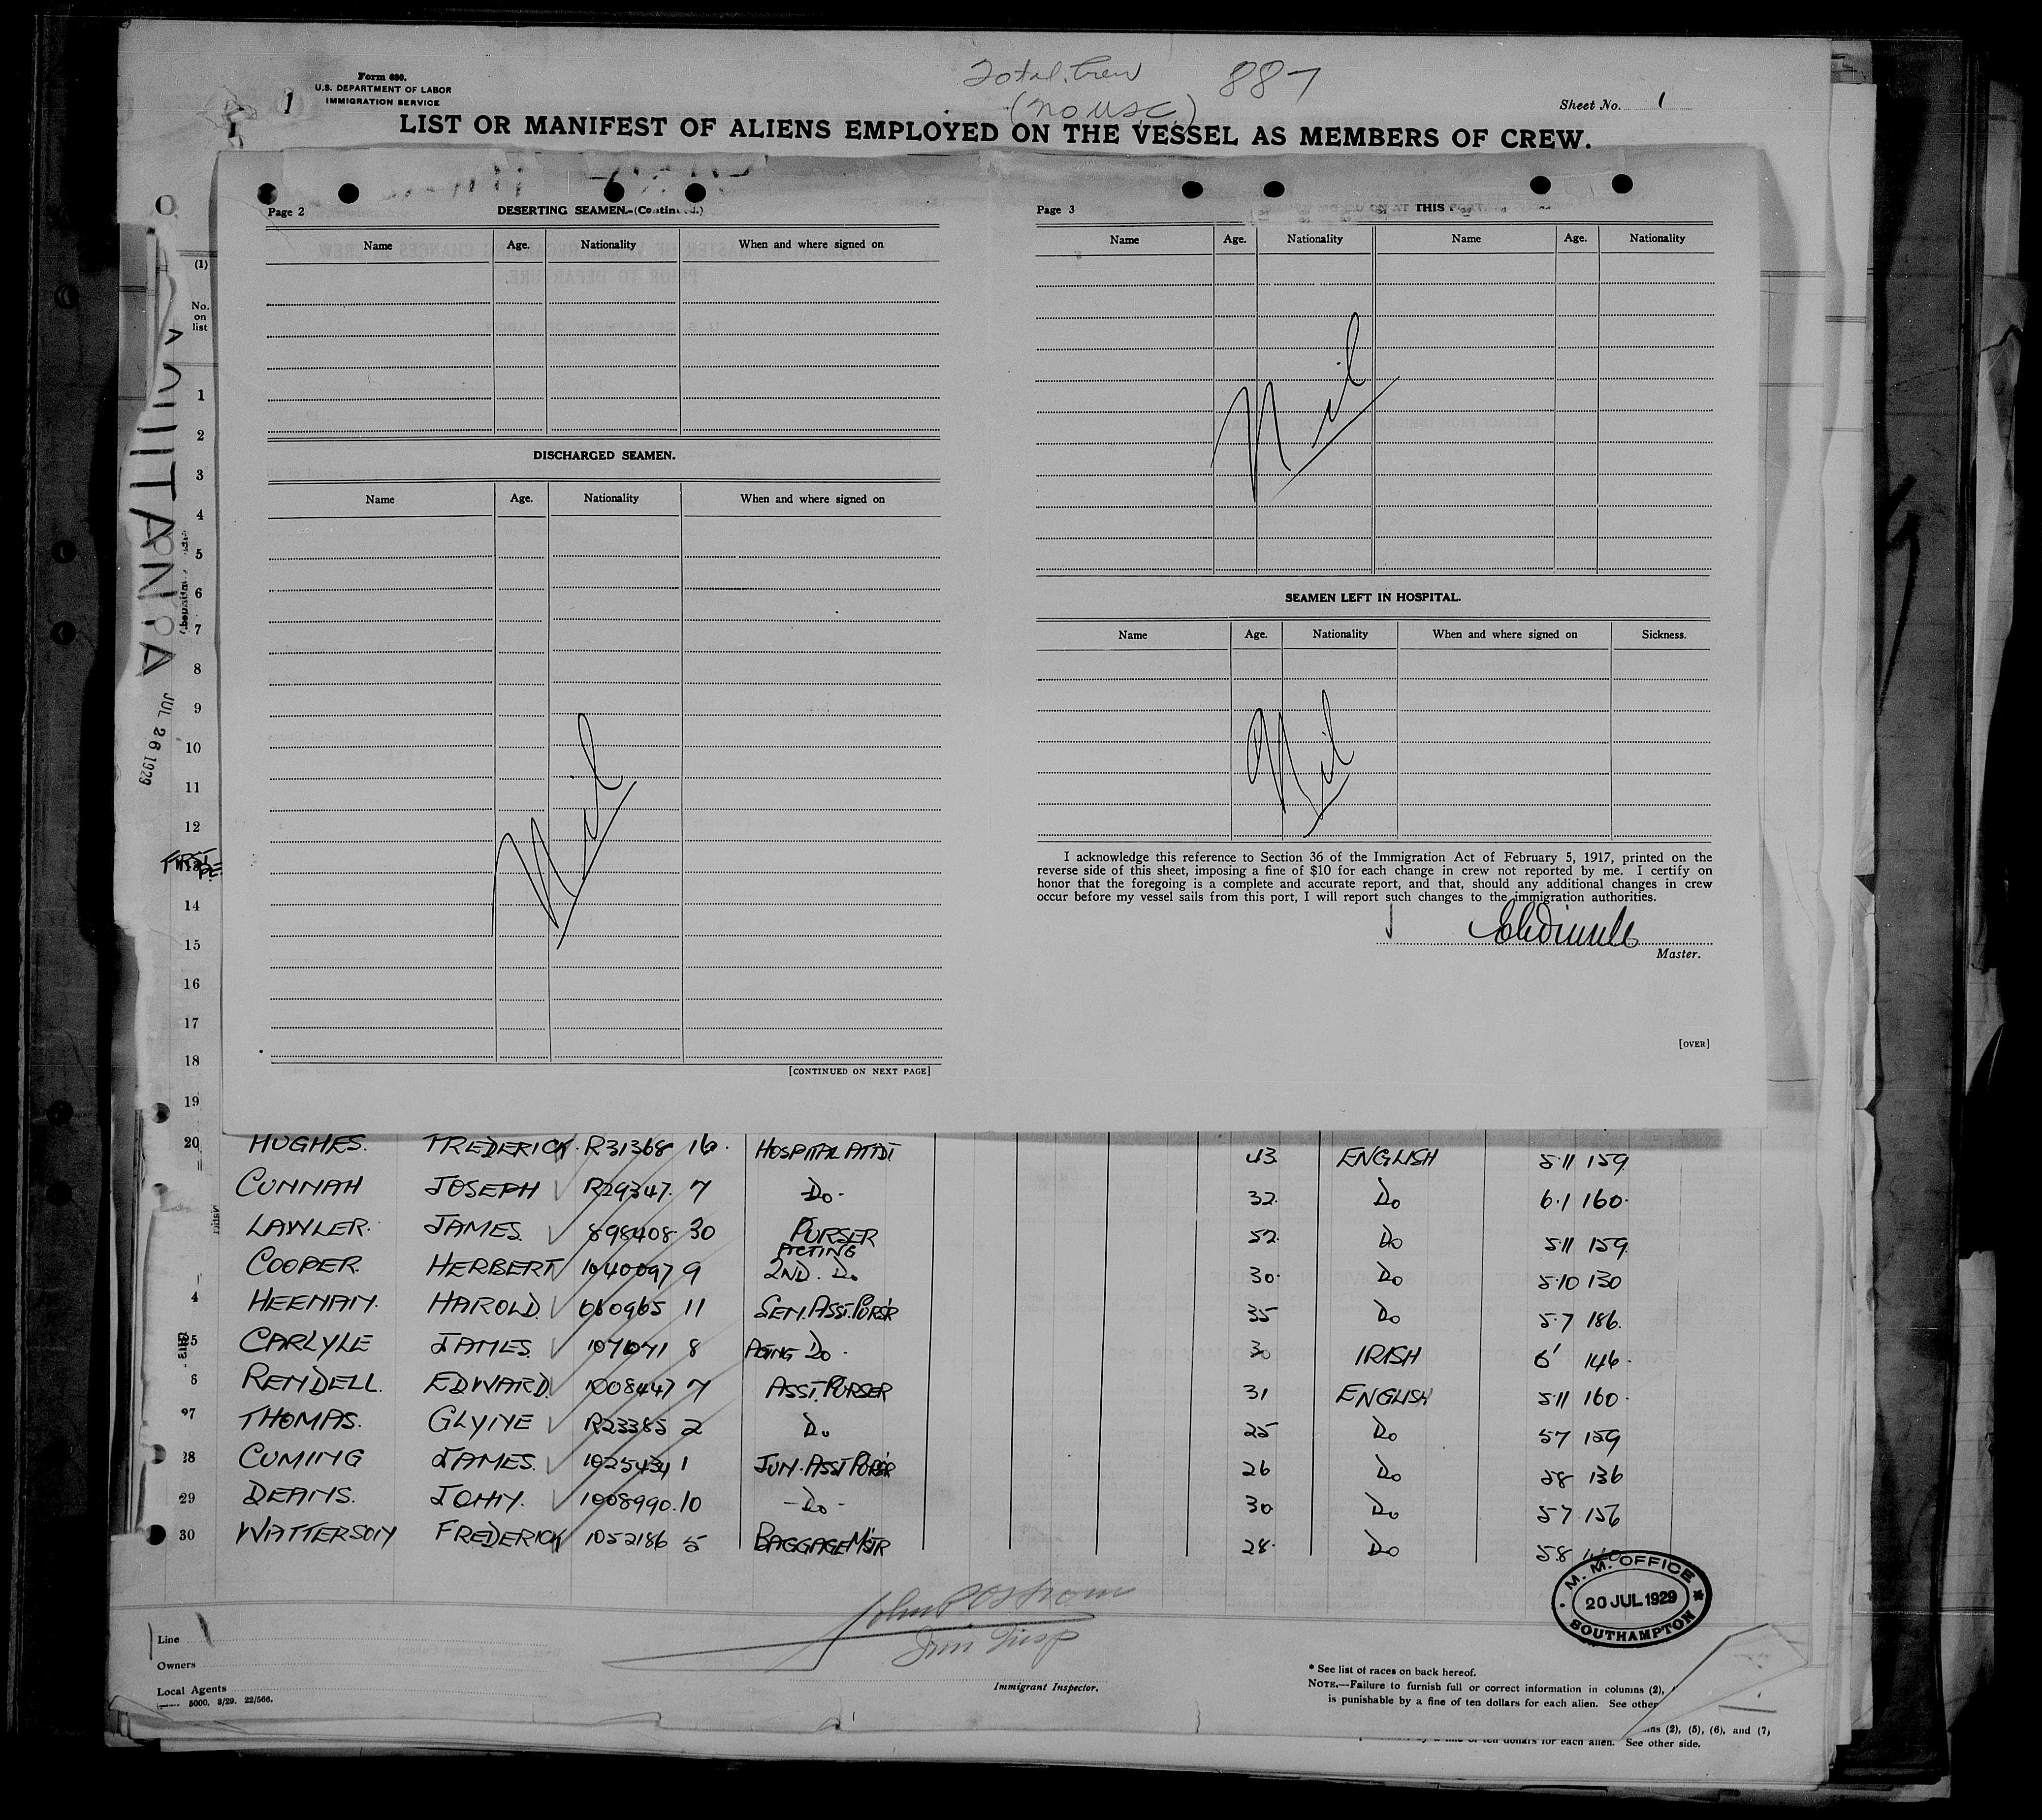 Total Crew 887
(no U.S.C.)
Form 680.
U.S. DEPARTMENT OF LABOR
IMMIGRATION SERVICE
1
Sheet No. 1
LIST OR MANIFEST OF ALIENS EMPLOYED ON THE VESSEL AS MEMBERS OF CREW.
Page 2
DESERTING SEAMEN.—(Continued.)
Name Age. Nationality When and where signed on
DISCHARGED SEAMEN.
Name Age. Nationality When and where signed on
Nil
[CONTINUED ON NEXT PAGE]
Page 3
THIS
Name Age. Nationality Name Age. Nationality
Nil
SEAMEN LEFT IN HOSPITAL.
Name Age. Nationality When and where signed on Sickness.
Nil
I acknowledge this reference to Section 36 of the Immigration Act of February 5, 1917, printed on the
reverse side of this sheet, imposing a fine of $10 for each change in crew not reported by me. I certify on
honor that the foregoing is a complete and accurate report, and that, should any additional changes in crew
occur before my vessel sails from this port, I will report such changes to the immigration authorities.
Master.
[OVER]
(1)
No.
on
list
1
2
3
4
5
6
7
8
9
10
11
12
14
15
16
17
18
19
JUL 26 1929
20 HUGHES. FREDERICK R31368 16 HOSPITAL ATTDT 43 ENGLISH 5.11 159
CUNNAH JOSEPH R29347 7 -Do- 32 Do 6.1 160
LAWLER JAMES 898408 30 PURSER 52 Do 5.11 159
COOPER HERBERT 1040097 9 ACTING 2ND. Do 30 Do 5.10 130
4 HEENAN. HAROLD. 060965 11 SEN. ASST. PURS'R 35 Do 5.7 186.
25 CARLYLE JAMES 1071071 8 ACTING Do 30 IRISH 6' 146
6 RENDELL. EDWARD. 1008447 7 ASST. PURSER 31 ENGLISH 5.11 160
27 THOMAS. GLYNE R23385 2 Do 25 Do 5.7 159
28 CUMING JAMES. 1025434 1 JUN. ASST PURS'R 26 Do 5.8 136
29 DEANS. JOHN. 1008990 10 -Do- 30 Do 5.7 156
30 WATTERSON FREDERICK 1052186 5 BAGGAGE MSTR 28 Do 5.8
M. M. OFFICE
20 JUL 1929
SOUTHAMPTON
Line
Owners
Local Agents
5000. 3/29. 22/566.
Immigrant Inspector.
* See list of races on back hereof.
NOTE.—Failure to furnish full or correct information in columns (2),
is punishable by a fine of ten dollars for each alien. See other
(2), (5), (6), and (7)
ten dollars for each alien. See other side.